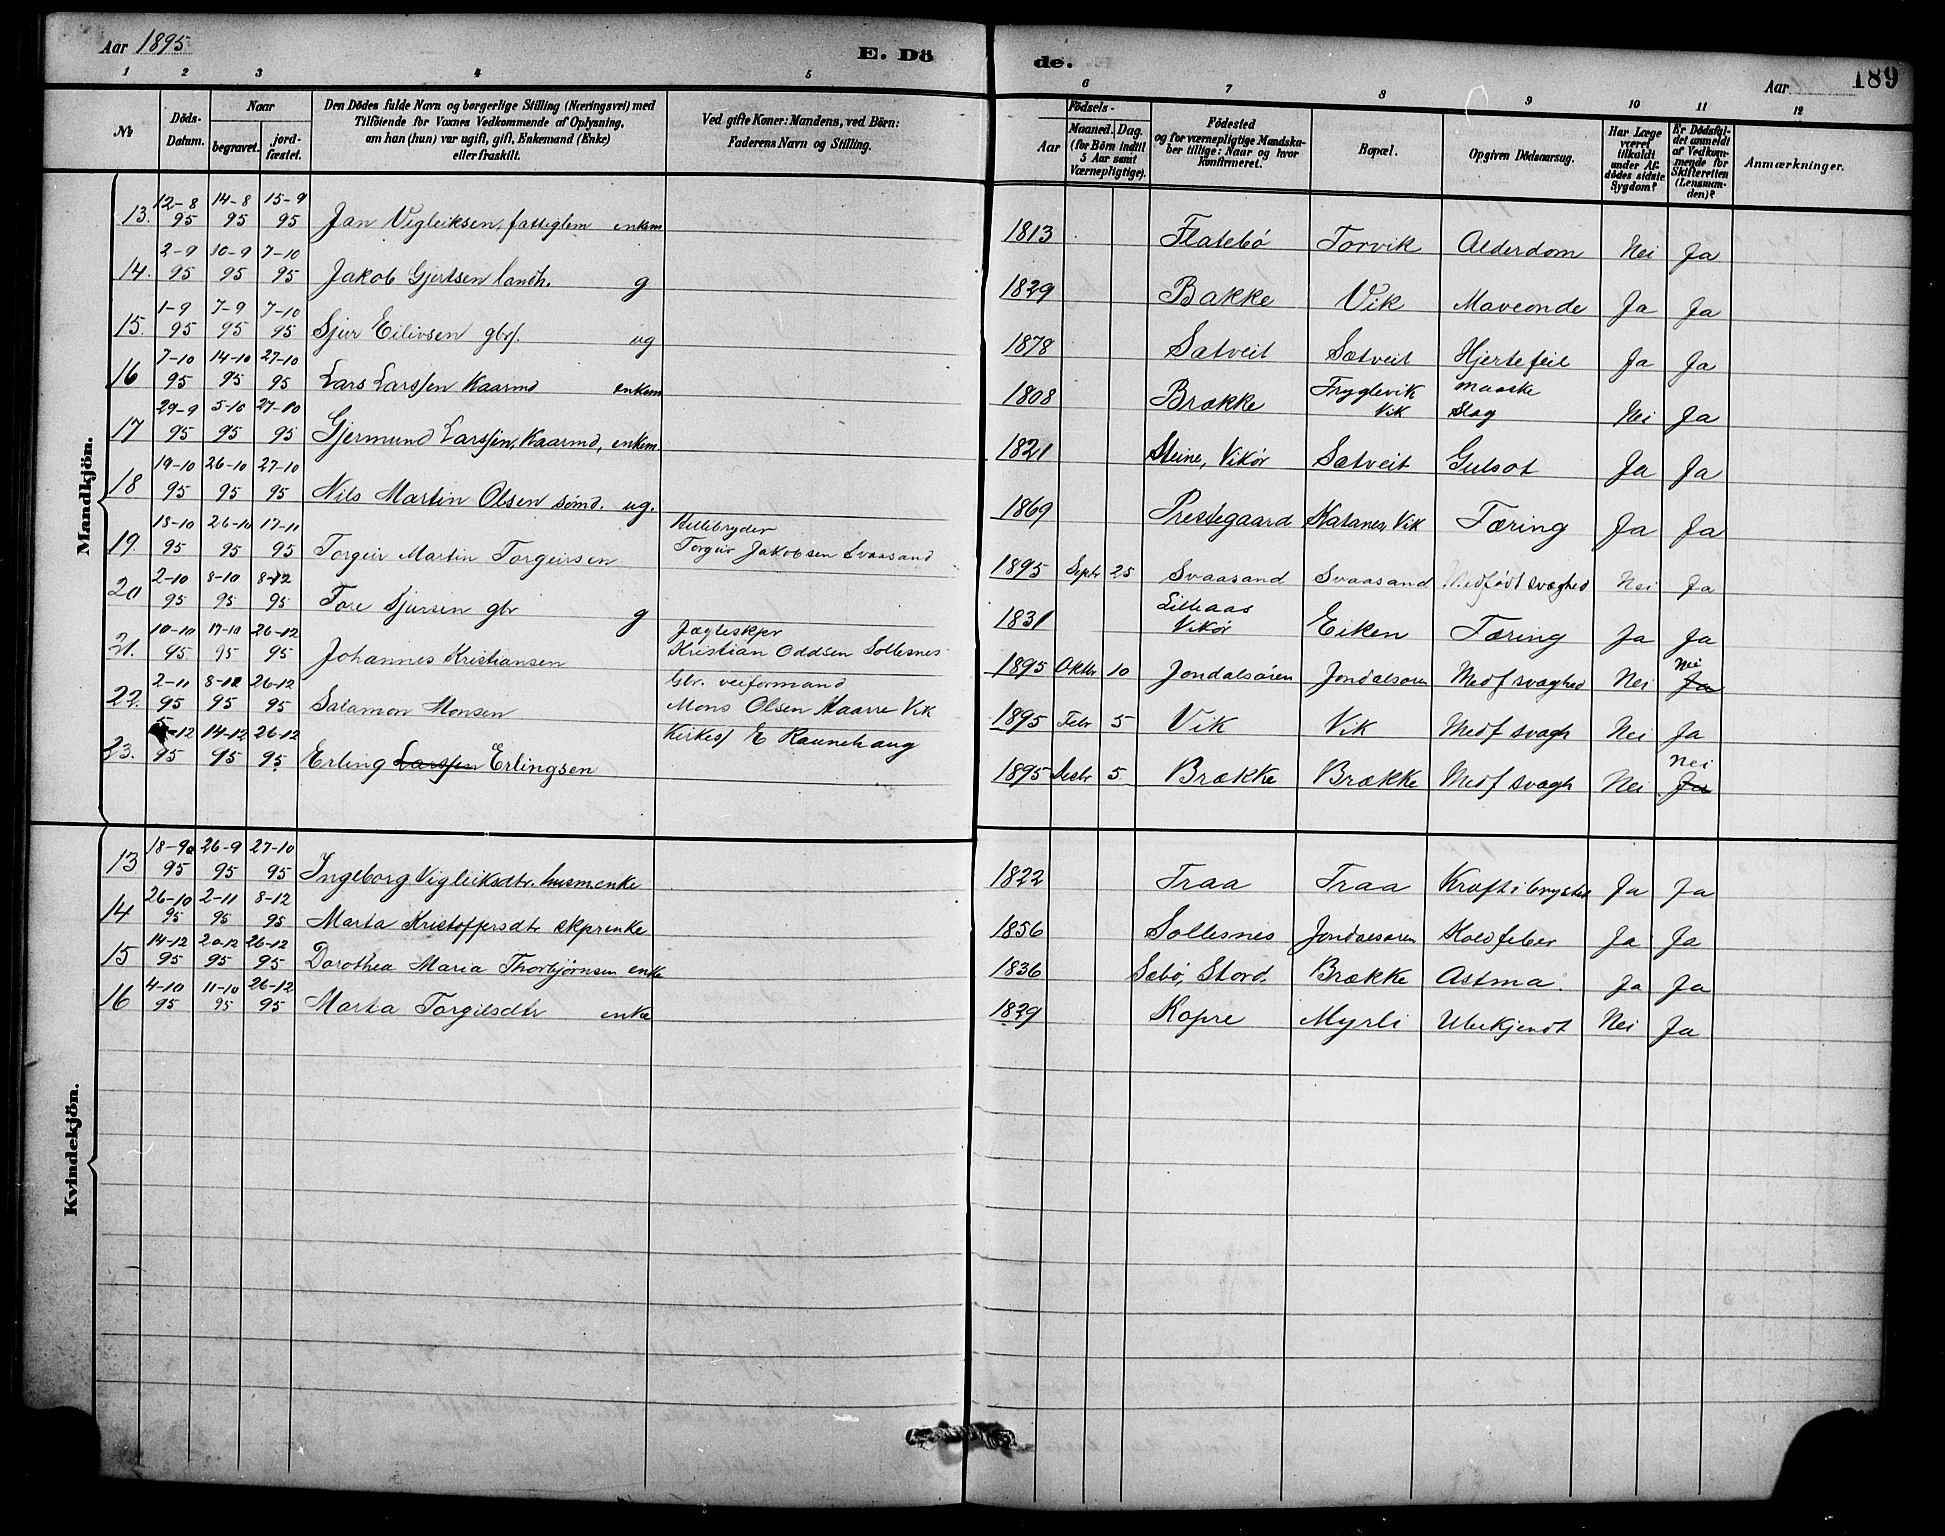 Aar 1895
E. Dö de.
Aar
189
1 2 3 4 5 6 7 8 9 10 11 12
№
Döds-Datum.
Naar
begravet.
jord-fæstet.
Den Dödes fulde Navn og borgerlige Stilling (Næringsvei) med Tilföiende for Voxnes Vedkommende af Oplysning, om han (hun) var ugift, gift, Enkemand (Enke) eller fraskilt.
Ved gifte Koner: Mandens, ved Börn: Faderens Navn og Stilling.
Födsels-
Aar
Maaned. Dag. (for Börn indtil 5 Aar samt Værnepligtige).
Födested og for værnepligtige Mandskaber tillige: Naar og hvor konfirmeret.
Bopæl.
Opgiven Dödsaarsag.
Har Læge været tilkaldt under Afdödes sidste Sygdom?
Er Dödsfaldet anmeldt af Vedkommende for Skifteretten (Lensmanden)?
Anmærkninger.
Mandkjön.
13. 12-8 95 14-8 95 15-9 95 Jan Vigleiksen, fattiglem enkem 1813 Flatebö Torvik Alderdom Nei Ja
14. 2-9 95 10-9 95 7-10 95 Jakob Gjertsen landh. g 1829 Bakke Vik Maveonde Ja Ja
15. 1-9 95 7-9 95 7-10 95 Sjur Eilivsen gbrs. ug 1878 Sætveit Sætveit Hjertefeil Ja Ja
16 7-10 95 14-10 95 27-10 95 Lars Larssen Kaarmd enkem 1808 Brække Tryglevik Vik Maaske Slag Nei Ja
17 29-9 95 5-10 95 27-10 95 Gjermund Larssen, Kaarmd, enkem. 1821 Steine, Vikør Sætveit Gulsot Ja Ja
18 19-10 95 26-10 95 27-10 95 Nils Martin Olsen sømd. ug. 1869 Prestegaard Katanes, Vik Tæring Ja Ja
19. 18-10 95 26-10 95 17-11 95 Torgeir Martin Torgeirsen Hellebryder Torgeir Jakobsen Svaasand 1895 Septr 25 Svaasand Svaasand Medfødt svaghed Nei Ja
20 2-10 95 8-10 95 8-12 95 Tore Sjursen gbr g 1831 Lilleaas Vikør Eiken Tæring Ja Ja
21. 10-10 95. 17-10 95 26-12 95 Johannes Kristiansen Jægteskpr Kristian Oddsen Sollesnes 1895 Oktbr 10 Jondalsøren Jondalsøren Medf svaghed Nei Nei Ja
22. 2-11 95 8-12 95 26-12 95 Salamon Monsen Gbr. veiformand Mons Olsen Haarre Vik 1895 Febr 5 Vik Vik Medf svagh Nei Ja
23. 5-12 95 14-12 95 26-12 95. Erling Larssen Erlingsen Kirkes/ E Raunehaug 1895 Desbr 5 Brække Brække Medf svagh Nei Nei Ja
Kvindekjön.
13 18-9 95 26-9 95 27-10 95 Ingeborg Vigleiksdtr. husmenke 1822 Traa Traa Kræft i brystet Ja Ja
14 26-10 95 2-11 95 8-12 95 Marta Kristoffersdtr skprenke 1856 Sollesnes Jondalsøren Koldfeber Ja Ja
15 14-12 95 20-12 95 26-12 95 Dorothea Maria Thorbjørnsen enke 1836 Sæbö, Stord. Brække Astma. Ja Ja
16 4-10 95 11-10 95 26-12 95 Marta Torgilsdtr enke 1829 Kopre Myrli Ubekjendt Nei Ja